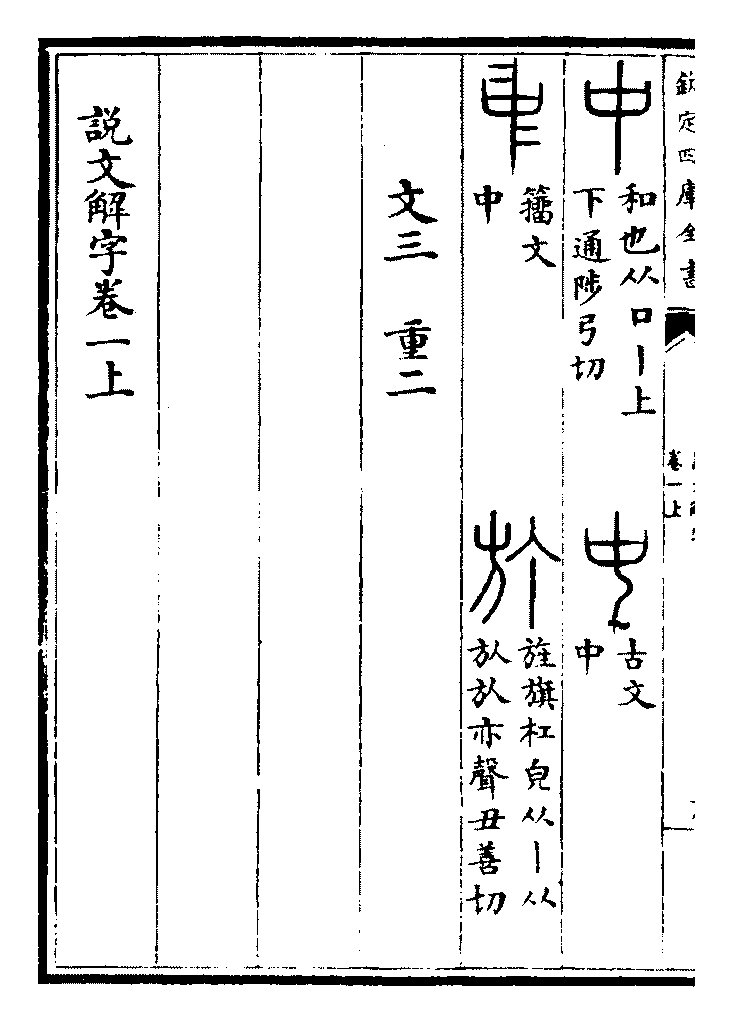 欽定四庫全書
卷一上
中
和也从口丨上
下通陟弓切
古文
中
籀文
中
旌旗杠皃从丨从
㫃㫃亦聲丑善切
文三　重二
說文解字卷一上